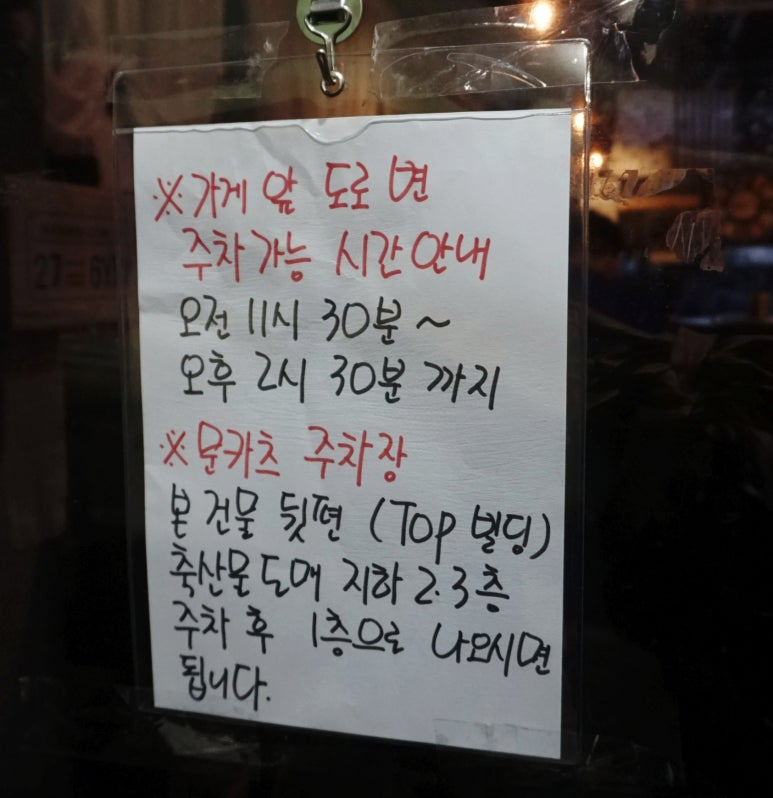 ※가게 앞 도로변
주차가능 시간안내
오전 11시 30분 ~
오후 2시 30분 까지
※문카츠 주차장
본 건물 뒷편 (Top 빌딩)
축산물도매 지하 2.3층
주차 후 1층으로 나오시면
됩니다.
27